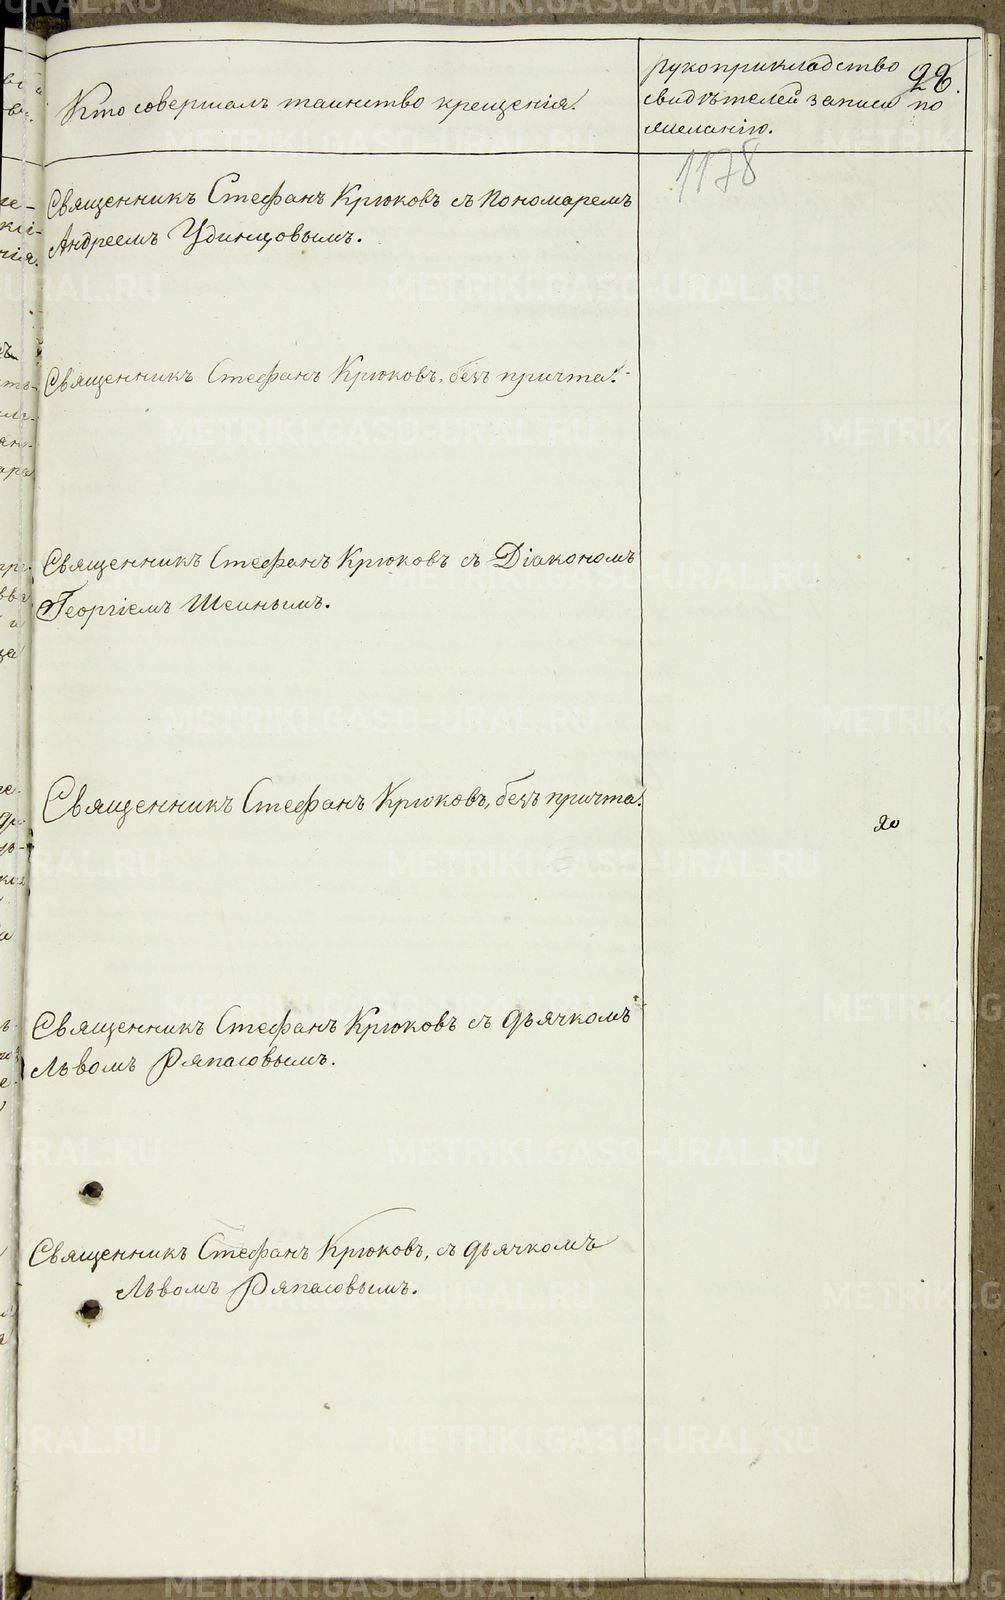 Кто совершалъ таинство крещенія.
рукоприкладство
свидѣтелей записи по
желанію.
28.
1178
Священникъ Стефанъ Крюковъ съ Пономаремъ
Андреемъ Удинцовымъ.
Священникъ Стефанъ Крюковъ, безъ причта.
Священникъ Стефанъ Крюковъ съ Діакономъ
Георгіемъ Шеинымъ.
Священникъ Стефанъ Крюковъ, безъ причта.
20
Священникъ Стефанъ Крюковъ съ дьячкомъ
Львомъ Ряпасовымъ.
Священникъ Стефанъ Крюковъ, съ дьячкомъ
Львомъ Ряпасовымъ.
METRIKI.GASO-URAL.RU